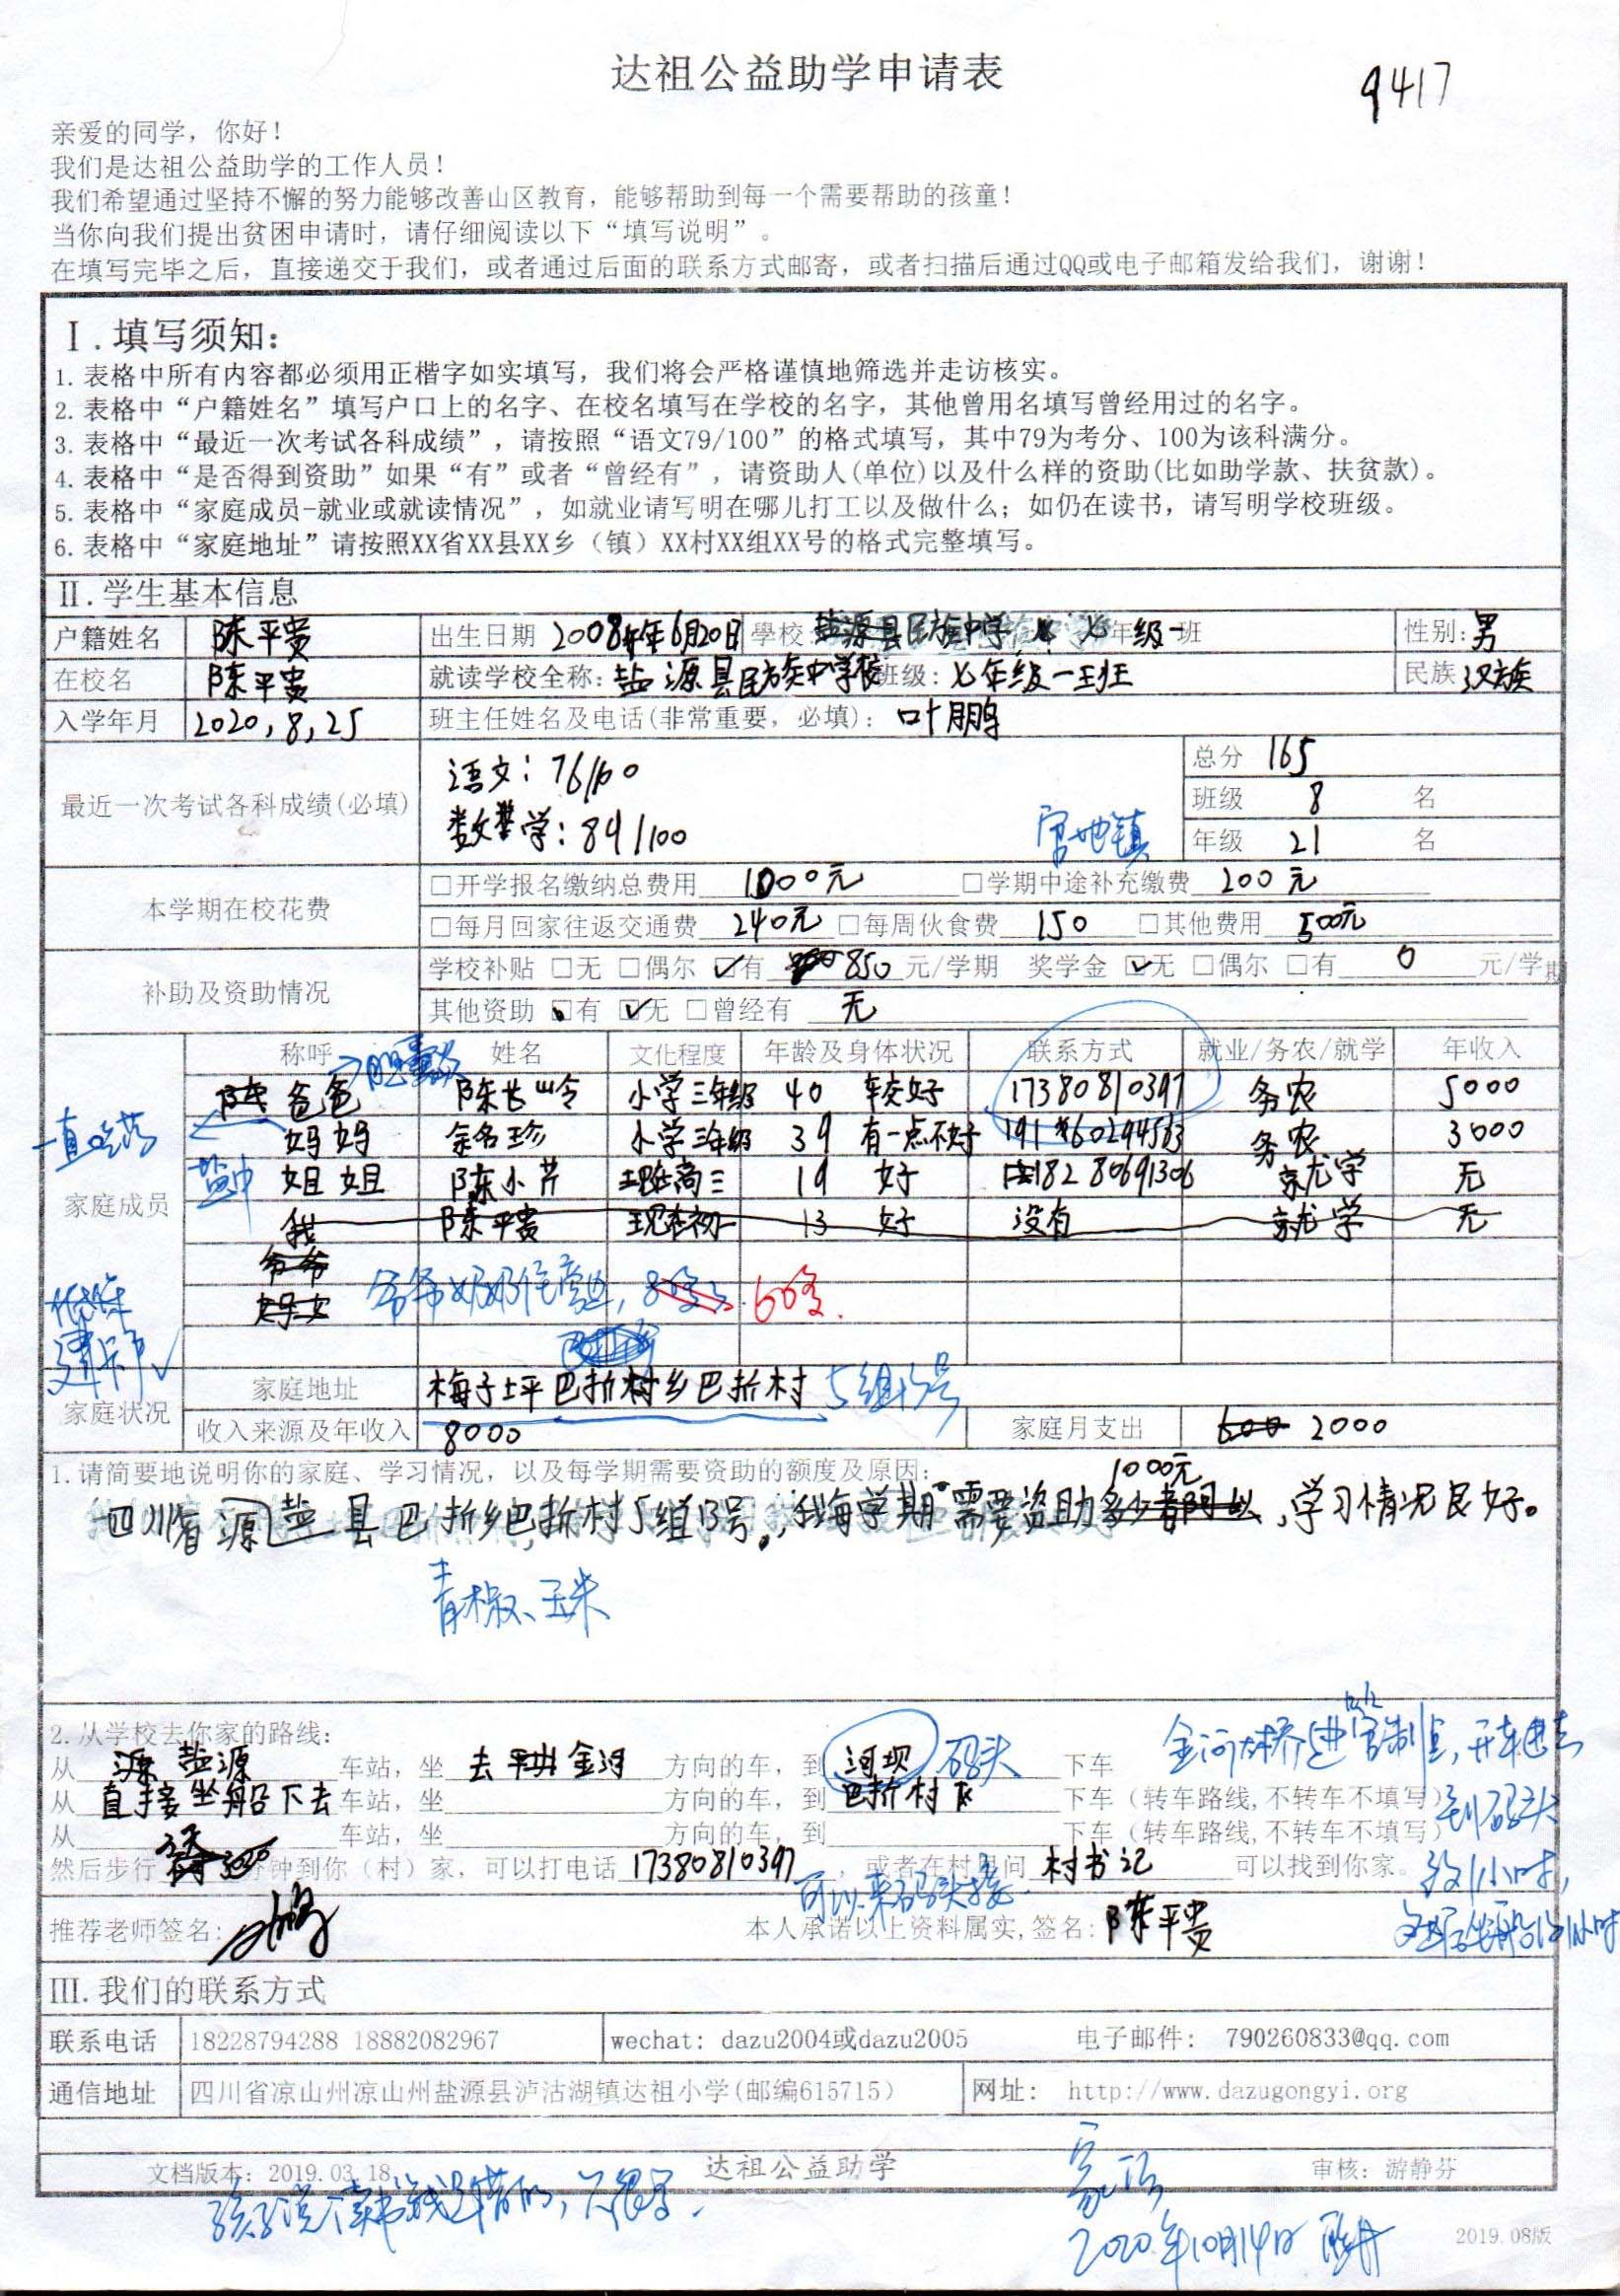 达祖公益助学申请表
9417
亲爱的同学，你好！
我们是达祖公益助学的工作人员！
我们希望通过坚持不懈的努力能够改善山区教育，能够帮助到每一个需要帮助的孩童！
当你向我们提出贫困申请时，请仔细阅读以下“填写说明”。
在填写完毕之后，直接递交于我们，或者通过后面的联系方式邮寄，或者扫描后通过QQ或电子邮箱发给我们，谢谢！
Ⅰ.填写须知：
1. 表格中所有内容都必须用正楷字如实填写，我们将会严格谨慎地筛选并走访核实。
2. 表格中“户籍姓名”填写户口上的名字、在校名填写在学校的名字，其他曾用名填写曾经用过的名字。
3. 表格中“最近一次考试各科成绩”，请按照“语文79/100”的格式填写，其中79为考分、100为该科满分。
4. 表格中“是否得到资助”如果“有”或者“曾经有”，请资助人(单位)以及什么样的资助(比如助学款、扶贫款)。
5. 表格中“家庭成员-就业或就读情况”，如就业请写明在哪儿打工以及做什么；如仍在读书，请写明学校班级。
6. 表格中“家庭地址”请按照XX省XX县XX乡（镇）XX村XX组XX号的格式完整填写。
Ⅱ.学生基本信息
户籍姓名 陈平贵 出生日期 2008年6月20日 學校: 盐源县民族中学 七年级一班 性别: 男
在校名 陈平贵 就读学校全称: 盐源县民族中学校 班级: 七年级一班 民族 汉族
入学年月 2020,8,25 班主任姓名及电话(非常重要，必填): 叶鹏
最近一次考试各科成绩(必填) 语文: 76/100 总分 165
数学: 89/100 班级 8 名
官地镇 年级 21 名
本学期在校花费 □开学报名缴纳总费用 1000元 □学期中途补充缴费 200元
□每月回家往返交通费 240元 □每周伙食费 150 □其他费用 500元
补助及资助情况 学校补贴 □无 □偶尔 ☑有 850 元/学期 奖学金 ☑无 □偶尔 □有 0 元/学期
其他资助 □有 ☑无 □曾经有 无
称呼 姓名 文化程度 年龄及身体状况 联系方式 就业/务农/就学 年收入
爸爸 陈长岭 小学三年级 40 较好 17380810397 务农 5000
一直吃药 妈妈 余名珍 小学三年级 39 有一点不好 务农 3000
盐中 姐姐 陈小芹 现在高三 19 好 18280691306 就学 无
家庭成员
我 陈平贵 现在初一 13 好 没有 就学 无
爷爷
爷爷奶奶 60多.
建卡户✓
家庭状况 家庭地址 梅子坪巴折村乡巴折村 5组13号
收入来源及年收入 8000 家庭月支出 2000
1.请简要地说明你的家庭、学习情况，以及每学期需要资助的额度及原因:
1000元
四川省源盐县巴折乡巴折村5组13号。我每学期需要资助多少都可以,学习情况良好。
青椒、玉米
2.从学校去你家的路线:
从 盐源 车站，坐 去 金河 方向的车，到 河坝 码头 下车
金河大桥进官制里,开车进去
从 直接坐船下去 车站，坐 方向的车，到 巴折村 下车（转车路线,不转车不填写）
到码头
从 车站，坐 方向的车，到 下车（转车路线,不转车不填写）
然后步行 分钟到你（村）家，可以打电话 17380810397 ，或者在村里问 村书记 可以找到你家。
可以来码头接.
推荐老师签名: 叶鹏 本人承诺以上资料属实,签名: 陈平贵
III.我们的联系方式
联系电话 18228794288 18882082967 wechat: dazu2004或dazu2005 电子邮件: 790260833@qq.com
通信地址 四川省凉山州凉山州盐源县泸沽湖镇达祖小学(邮编615715) 网址: http://www.dazugongyi.org
文档版本: 2019.03.18 达祖公益助学 审核: 游静芬
2020年10月14日
2019.08版